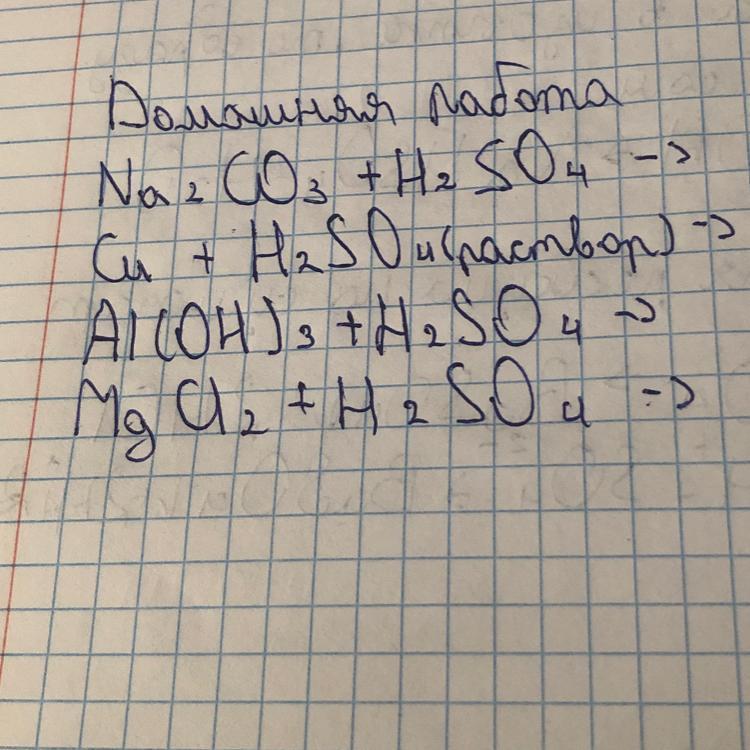 Домашняя работа
Na₂CO₃ + H₂SO₄ ->
Cu + H₂SO₄(раствор) ->
Al(OH)₃ + H₂SO₄ ->
MgCl₂ + H₂SO₄ ->